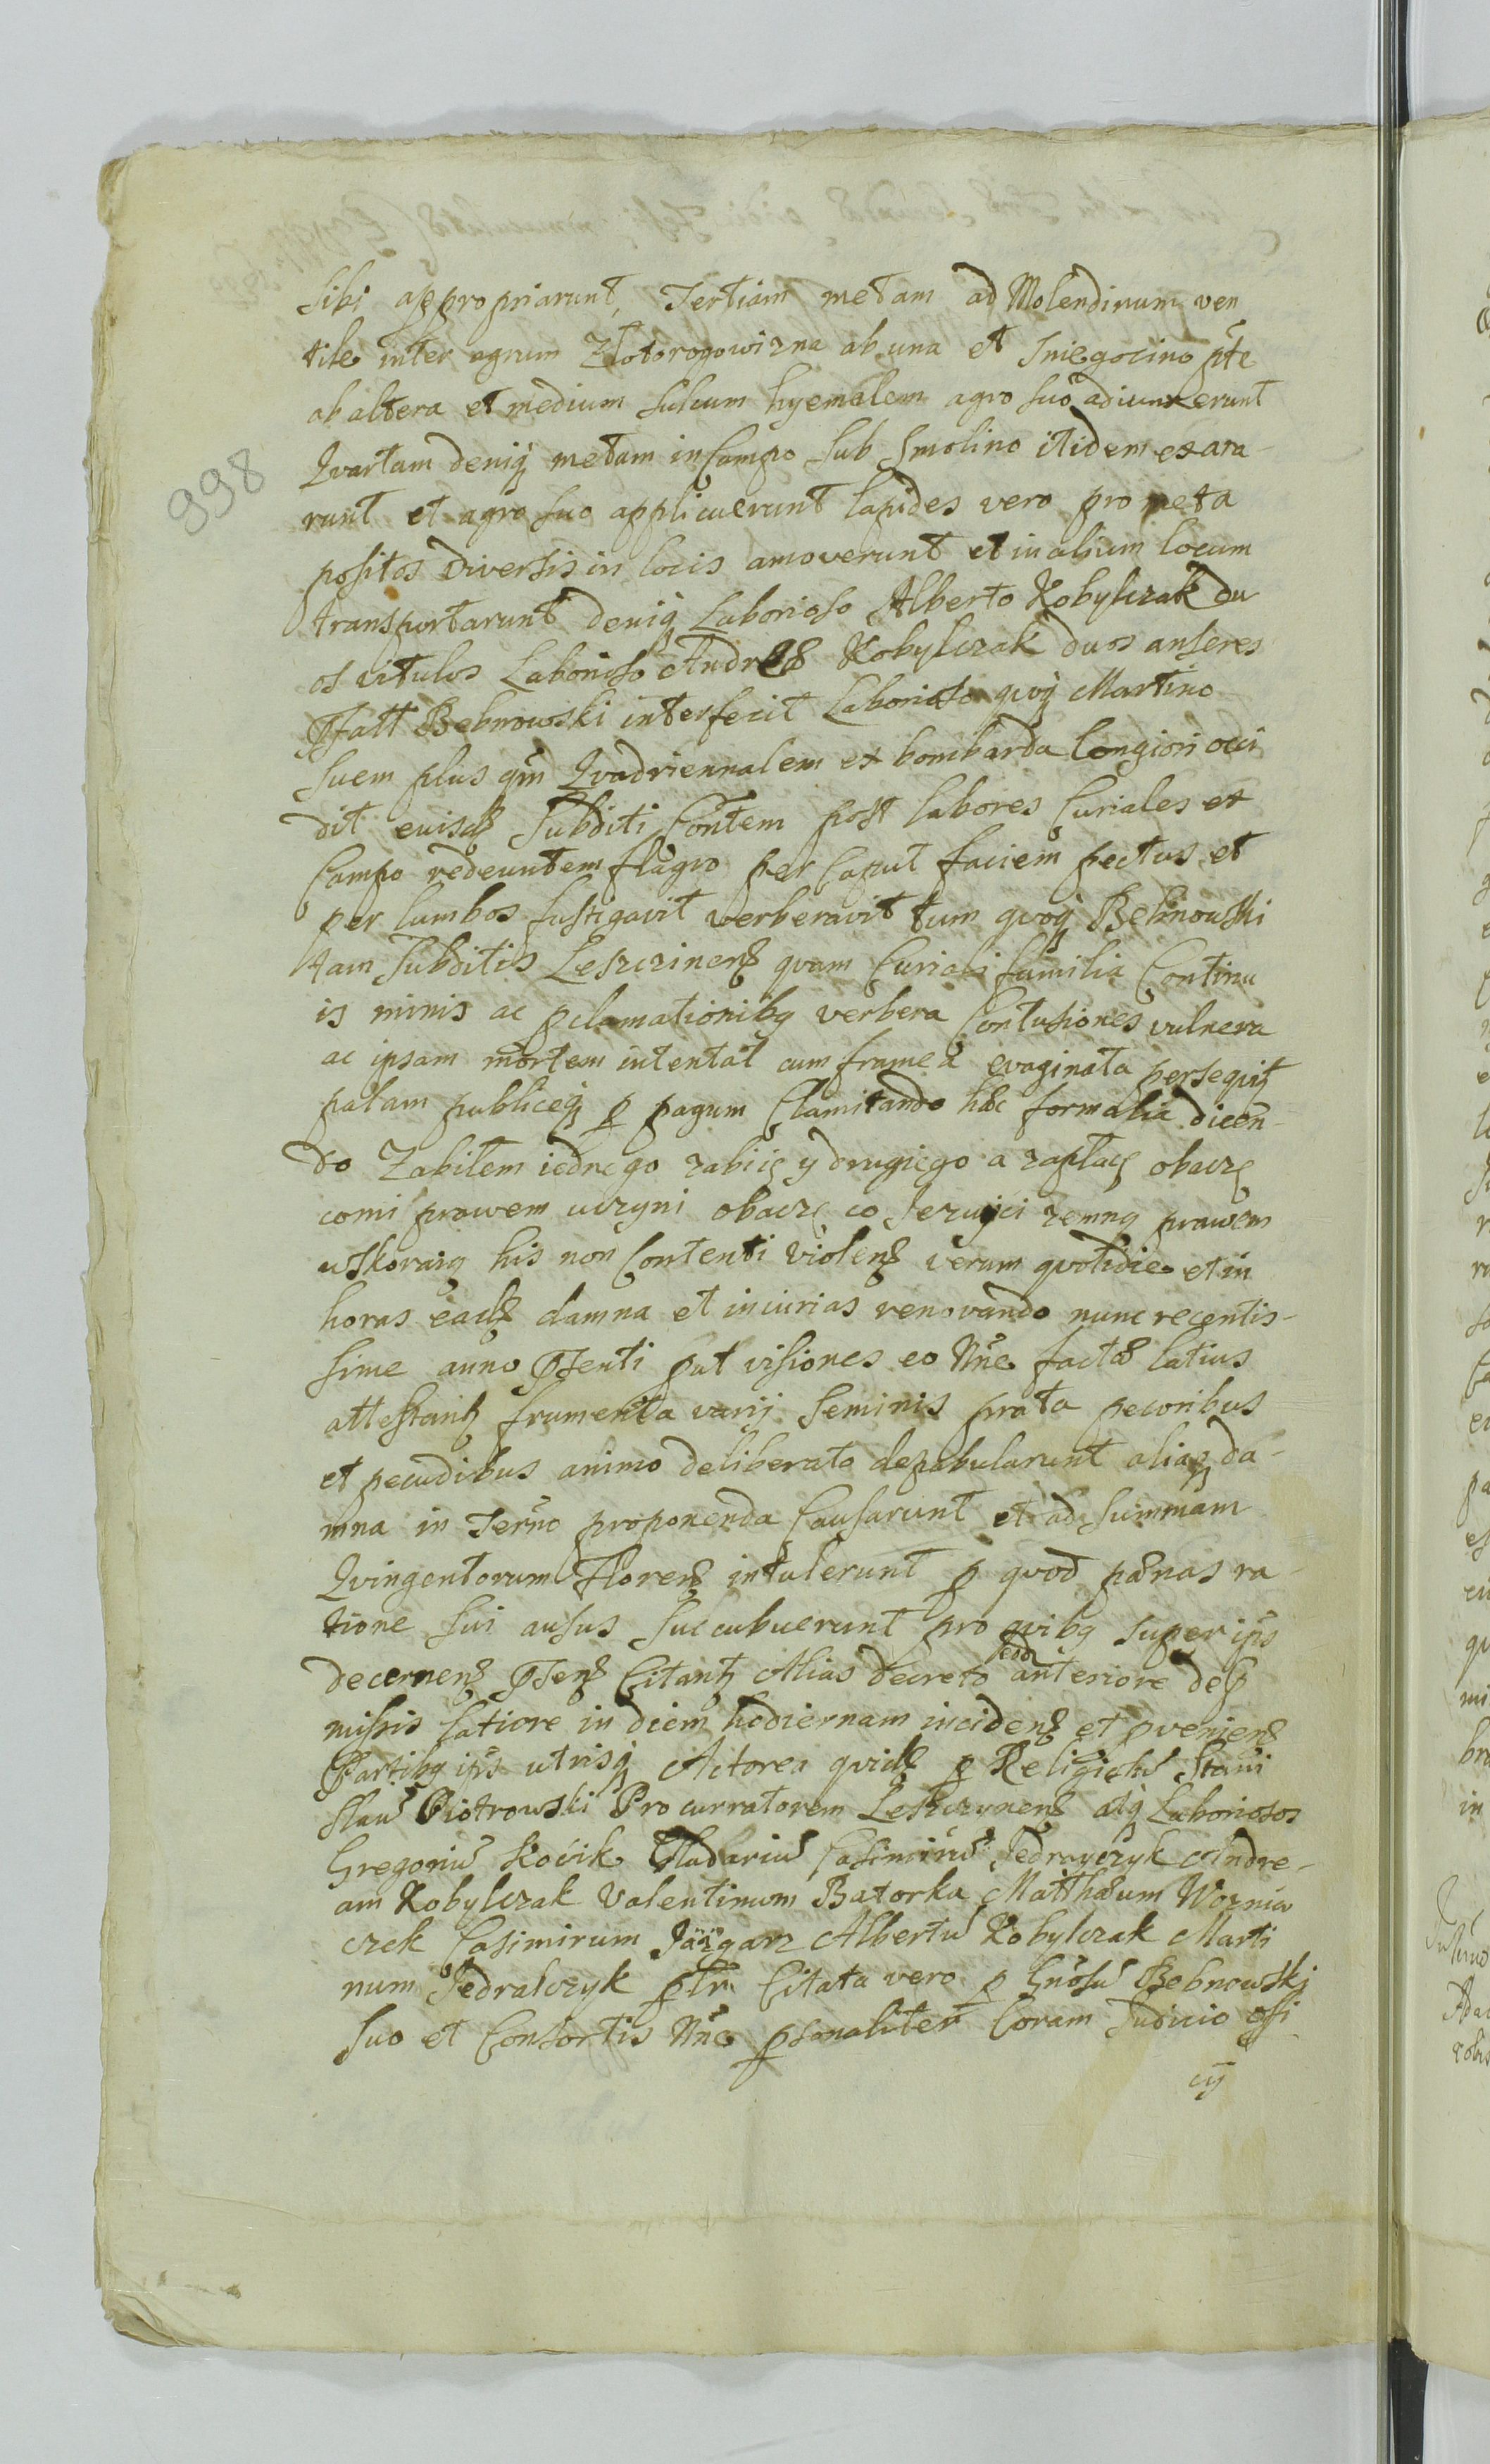 998
sibi appropriarunt, Tertiam metam ad Molendinum ven
tile inter agrum Zlotorogowizna ab una et Sniegocino pte
ab altera et medium sulcum hyemalem agro suo adiunxerunt
Qvartam deniq metam in Campo sub Smolino itidem exara-
runt et agro suo applicuerunt lapides vero pro meta
positos diversis in locis amoverunt et in alium locum
transportarunt deniq Laborioso Alberto Kobylczak du
os vitulos Laborioso Andreæ Kobylczak duos anseres
Bebnowski interfecit Laborioso qvoq Martino
suem plus qm Qvadriennalem ex bombarda longiori occi
dit euisdē subditi Contem post labores Curiales ex
Campo redeuntem flagro per Caput faciem pectus et
per lumbos fustigavit verberavit tum qvoq Bebnowski
tam Subditis Leszczinens qvam Curiali familiæ Continu
is minis ac pclamationibq verbera Contusiones vulnera
ac ipsam mortem intentat cum framea evaginata perseqvit
palam publiceq p pagum Clamitando hæc formalia dicen-
do Zabiłem iednego zabiię y drugiego a zapłacę obaczę
comi prawem uczyni obaczę co Jezuici zemną prawem
wskoraią his non Contenti violens verum qvotidie et in
horas eadē damna et iniurias renovando nunc recentis-
sime anno Psenti put visiones eo Nne factæ latius
attestant frumenta varij Seminis prata pecoribus
et pecudibus animo deliberato depabularunt aliaq da-
mna in Terno proponenda Causarunt et ad summam
Qvingentorum Florens intulerunt p qvod pænas ra-
tione sui ausus succubuerunt pro qvibq super ips
decernens Psens Citant Alias decreto eodē anteriore de p
missis latiore in diem hodiernam incidens et pveniens
Partibq ips utrisq Actorea qvidē p Religiosū Stani
slaū Piotrowski Procurratorem Leszczynens atq Laboriosos
Gregoriū Kocik Wladariū Casimirū Jedrayczyk Andre-
am Kobylczak Valentinum Batorka Matthæum Woznia
czek Casimirum Albertū Kobylczak Marti
num Jedralczyk pltr Citata vero p Gnosū Bebnowski
suo et Consortis Nne psonaliter Coram Judicio offi
cij